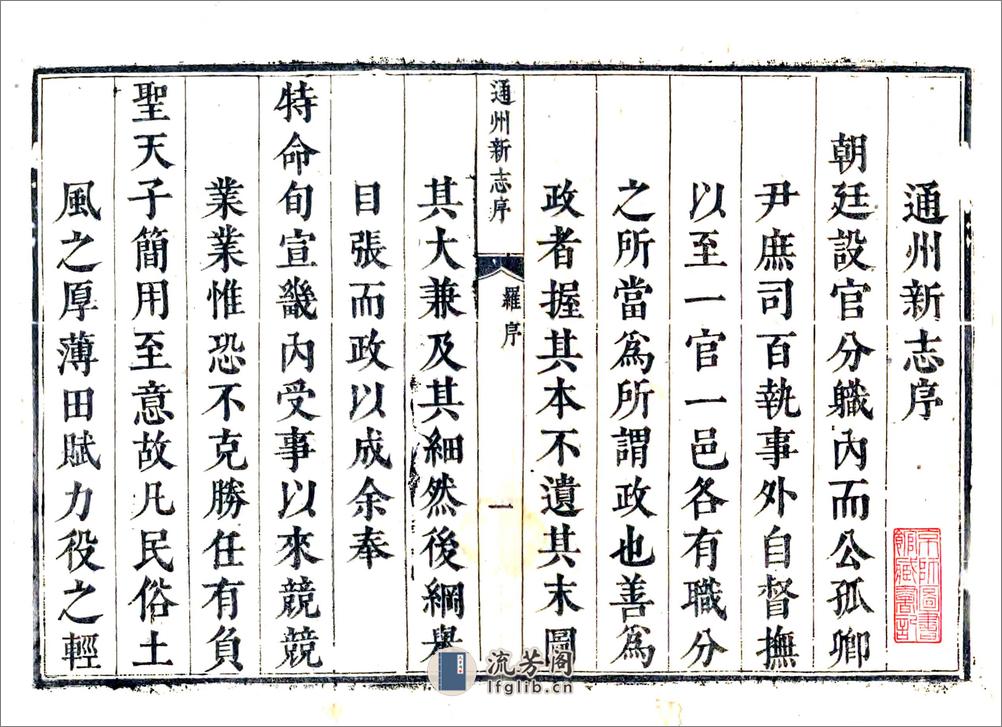 通州新志序
朝廷設官分職內而公孤卿
尹庶司百執事外自督撫
以至一官一邑各有職分
之所當爲所謂政也善爲
政者握其本不遺其末圖
通州新志序
羅序
一
其大兼及其細然後綱舉
目張而政以成余奉
特命旬宣畿內受事以來競競
業業惟恐不克勝任有負
聖天子簡用至意故凡民俗土
風之厚薄田賦力役之輕
京師圖書
館藏書記
流芳閣
lfglib.cn